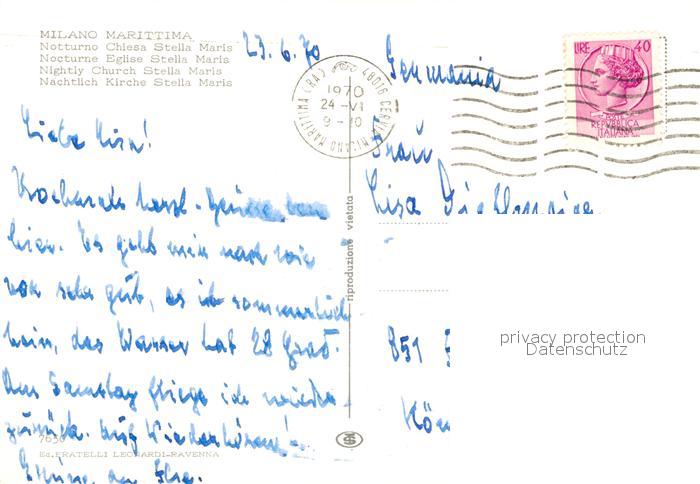 MILANO MARITTIMA
Notturno Chiesa Stella Maris
Nocturne Eglise Stella Maris
Nightly Church Stella Maris
Nachtlich Kirche Stella Maris
23.6.70
48016 CERVIA-MILANO MARITTIMA (RA)
1970
24-VI
9-10
LIRE 40
REPVBBLICA
ITALIANA
Germania
Frau
Lisa
Liebe Lisa!
Nochmals herzl. Grüße von
hier. Es geht mir nach wie
vor sehr gut, es ist sommerlich
heiß, das Wasser hat 28 Grad.
Am Samstag fliege ich wieder
zurück. Auf Wiederhören!
Grüße an
riproduzione vietata
851
privacy protection
Datenschutz
7630
Ed. FRATELLI LEONARDI-RAVENNA